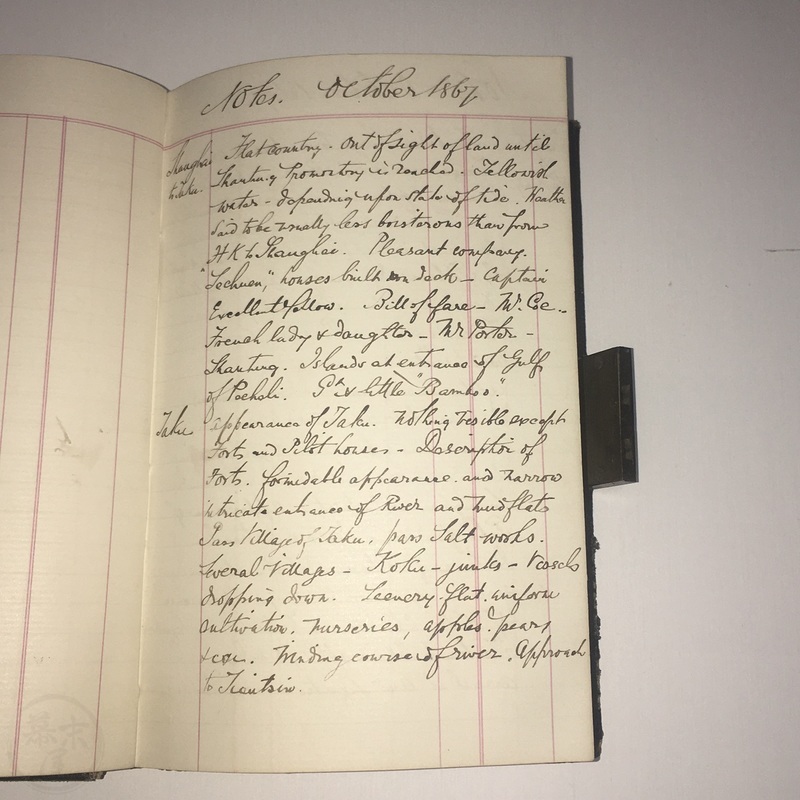 Notes. October 1867
Shanghai to Taku.
Flat country. Out of sight of land until
Shantung Promontory is reached. Yellowish
water - depending upon state of tide. Weather
said to be usually less boisterous than from
HK to Shanghai. Pleasant company.
"Sechuen", houses built on deck - Captain
Excellent fellow. Bill of fare - Mr. Coe -
French lady & daughter - Mr Porter -
Shantung. Islands at entrance of Gulf
of Pecheli. Gt & little "Bamboo".
Taku
appearance of Taku. nothing visible except
Forts and Pilot houses - Description of
Forts. formidable appearance and narrow
intricate entrance of River and mudflats
Pass Village of Taku, pass Salt-works.
Several Villages - Koku - junks - Vessels
dropping down. Scenery flat. uniform
cultivation. Nurseries, apples, pears
&c. Winding course of river. Approach
to Tientsin.
幕末